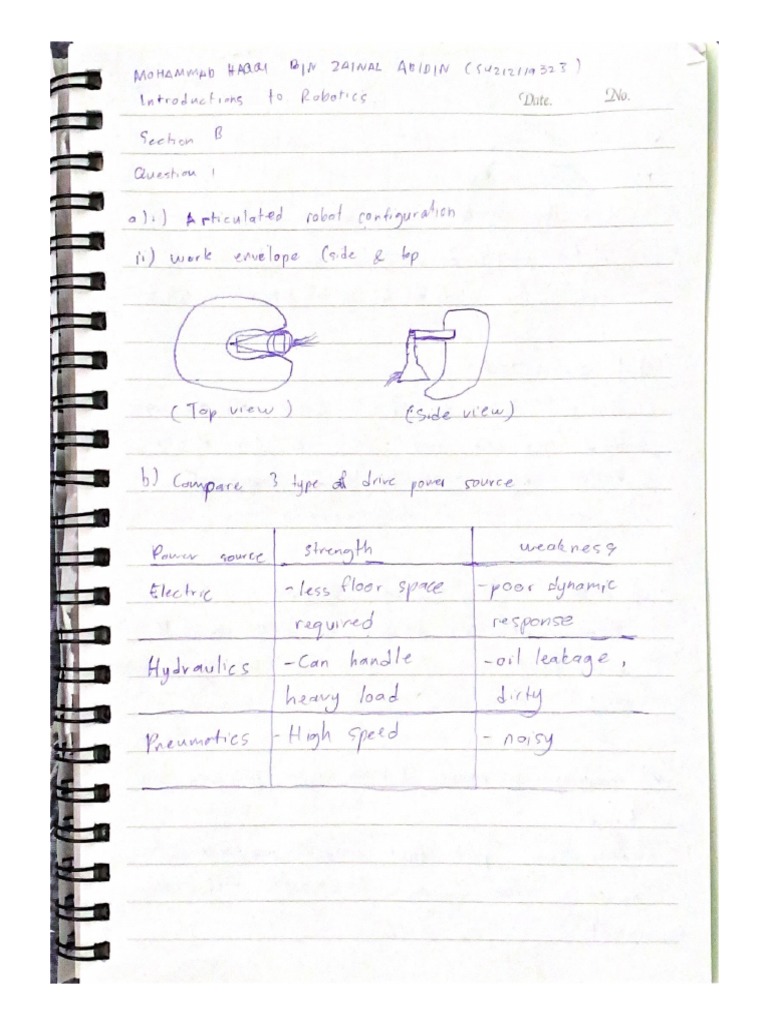 MOHAMMAD HAQQI BIN ZAINAL ABIDIN
Introductions to Robotics Date. No.
Section B
Question 1
a) i) Articulated robot configuration
ii) work envelope (side & top
(Top view) (Side view)
b) Compare 3 type of drive power source
Power source strength weakness
Electric - less floor space - poor dynamic
required response
Hydraulics - Can handle - oil leakage,
heavy load dirty
Pneumatics - High speed - noisy